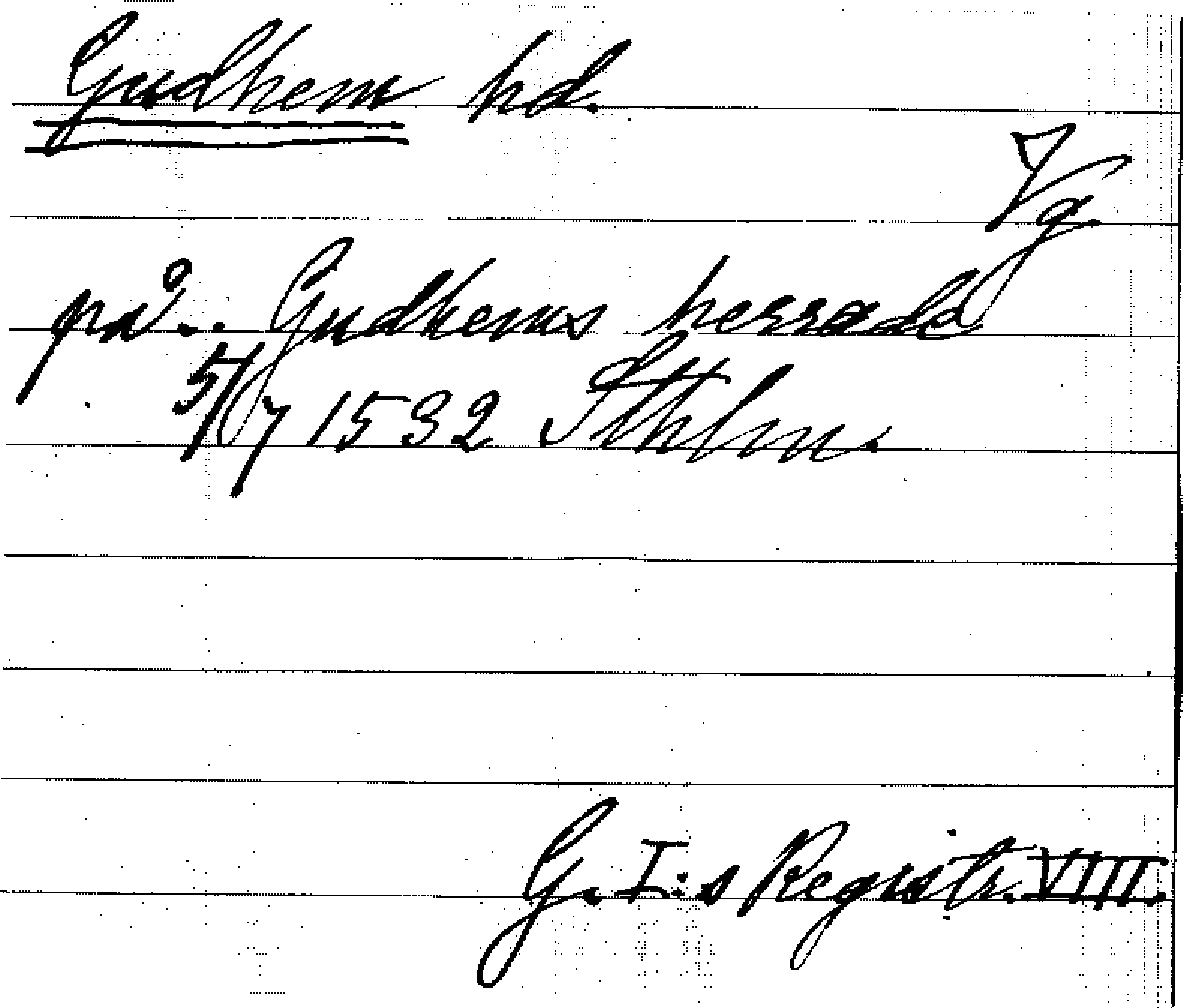 Gudhem hd.
Vg.
på.. Gudhems herrade
5/7 1532 Sthlm.
G. I:s Registr. VIII.